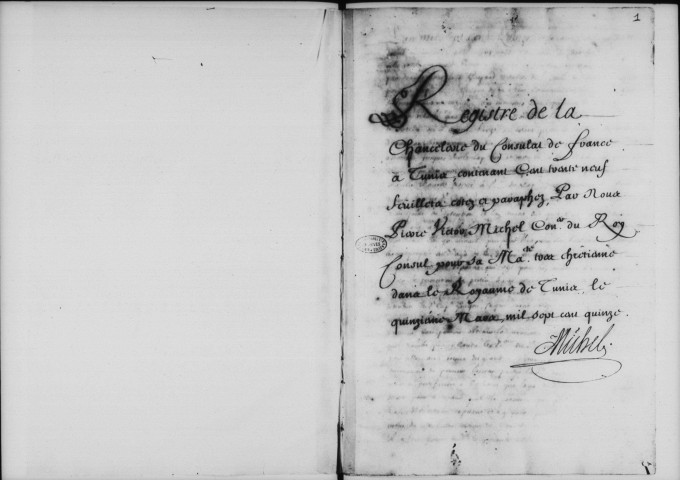 1
Registre de la
Chancelerie du Consulat de france
a Tunis, contenant Cent trente neuf
feuillets cotez et paraphez, Par Nous
Pierre Victor Michel Con.er du Roy
Consul pour sa Ma.té tres chrétiene
dans le Royaume de Tunis le
quinzieme Mars, mil sept cent quinze.
Michel